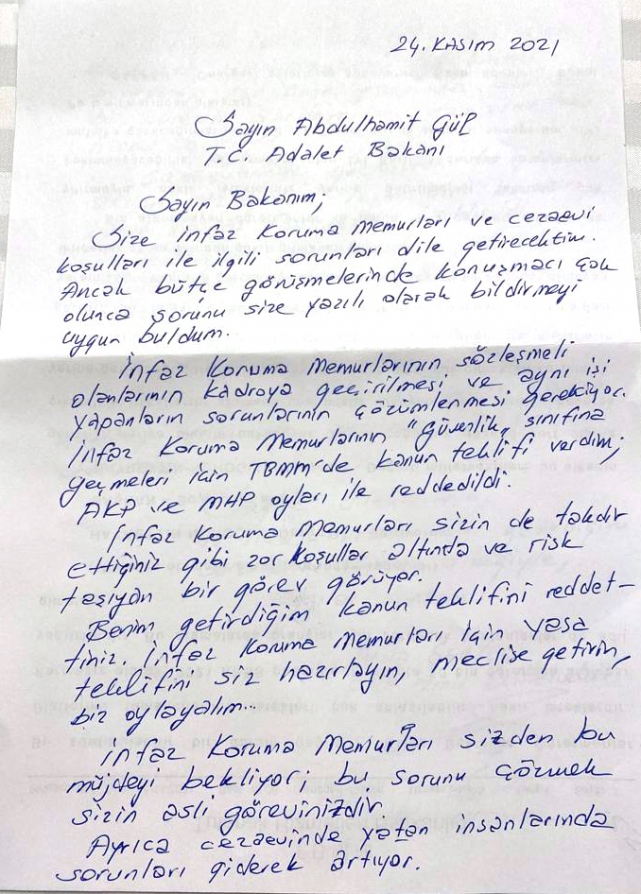 24. KASIM 2021
Sayın Abdulhamit GÜL
T.C. Adalet Bakanı
Sayın Bakanım;
Size infaz koruma memurları ve cezaevi
koşulları ile ilgili sorunları dile getirecektim.
Ancak bütçe görüşmelerinde konuşmacı çok
olunca sorunu size yazılı olarak bildirmeyi
uygun buldum.
İnfaz Koruma Memurlarının sözleşmeli
olanlarının kadroya geçirilmesi ve aynı işi
yapanların sorunlarının çözümlenmesi gerekiyor.
İnfaz Koruma Memurlarının "Güvenlik" sınıfına
geçmeleri için TBMM'de kanun teklifi verdim;
AKP ve MHP oyları ile reddedildi.
İnfaz Koruma Memurları sizin de takdir
ettiğiniz gibi zor koşullar altında ve risk
taşıyan bir görev görüyor.
Benim getirdiğim kanun teklifini reddet-
tiniz. İnfaz Koruma Memurları için yasa
teklifini siz hazırlayın, meclise getirin,
biz oylayalım..
İnfaz Koruma Memurları sizden bu
müjdeyi bekliyor, bu sorunu çözmek
sizin asli görevinizdir.
Ayrıca cezaevinde yatan insanlarında
sorunları giderek artıyor.